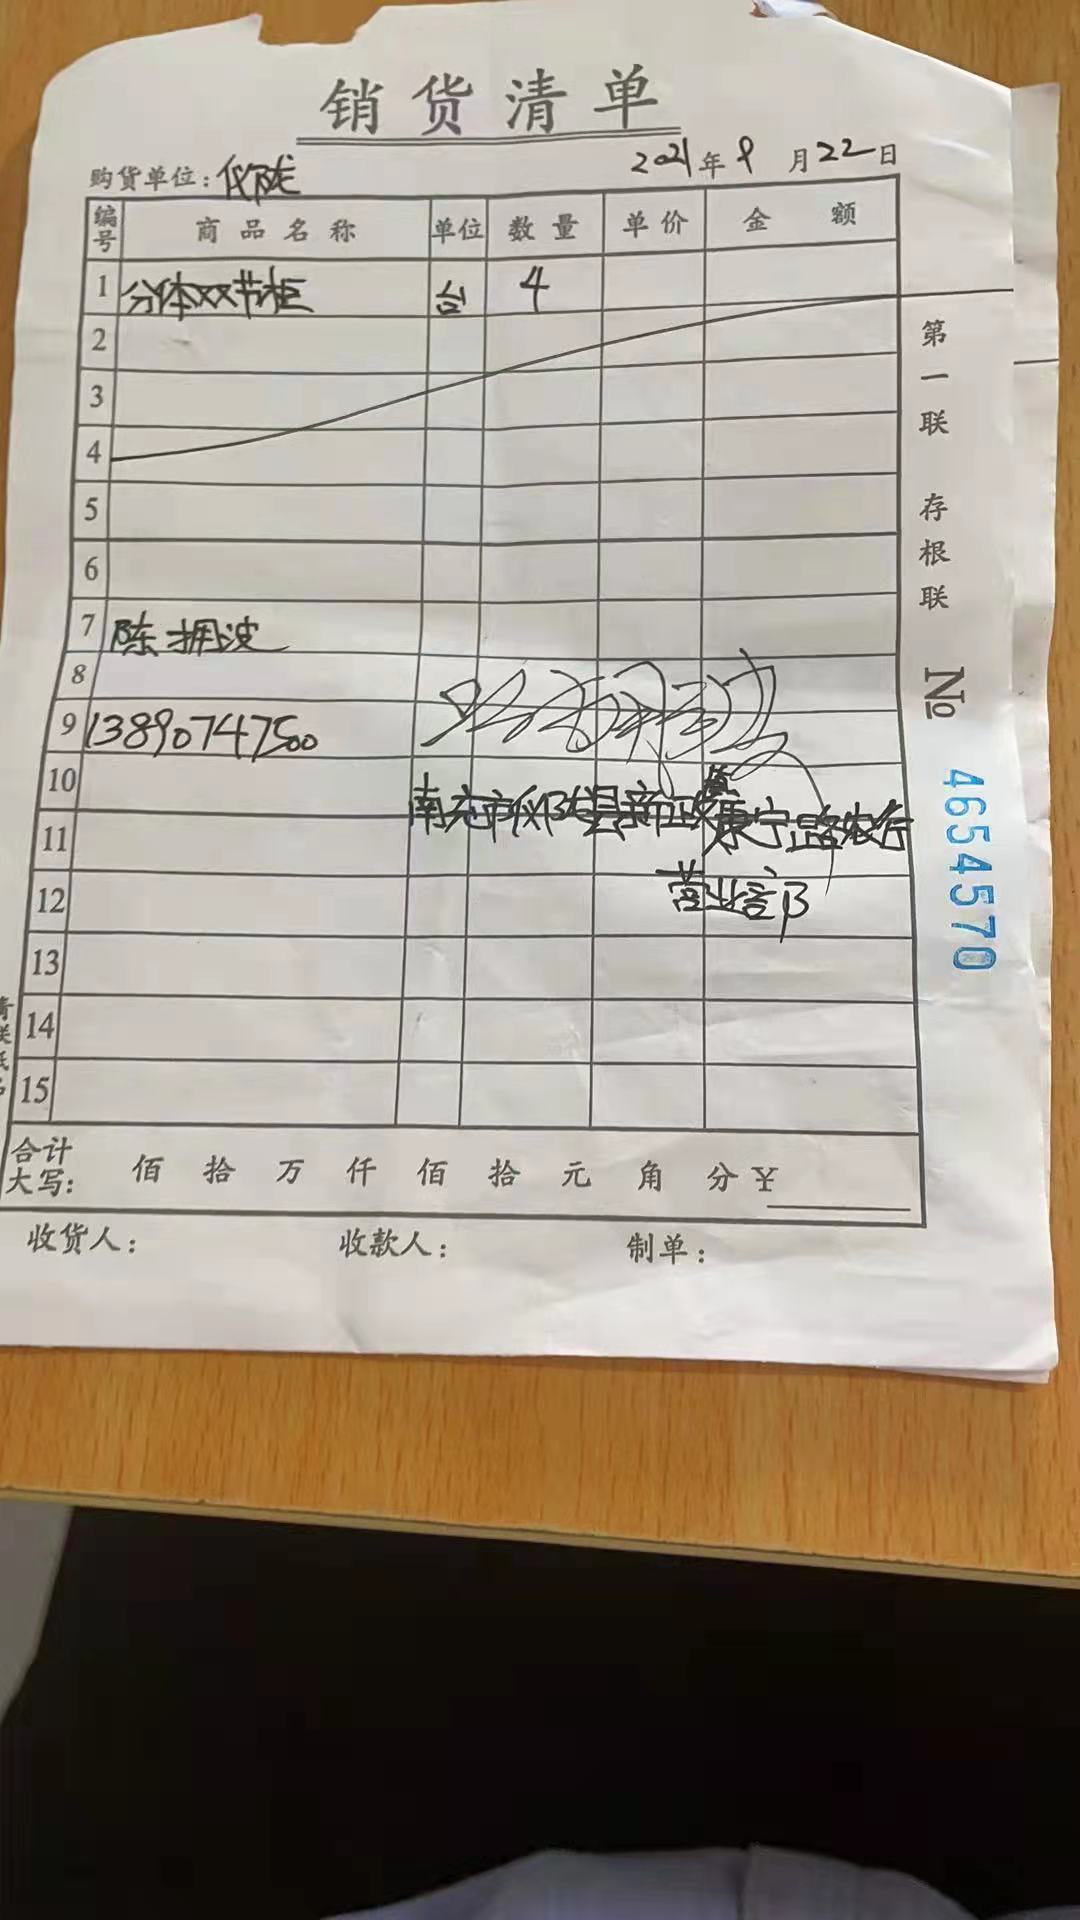 销货清单
购货单位：仪陇 2021年9月22日
编号 商品名称 单位 数量 单价 金额
1 分体双节柜 台 4
2
3
4
5
6
7 陈拥波
8
9 13890747500
10
南充市仪陇县新政镇康宁路农行
11
营业部
12
13
14
15
合计大写： 佰 拾 万 仟 佰 拾 元 角 分 ¥
收货人： 收款人： 制单：
第一联 存根联
№ 4654570